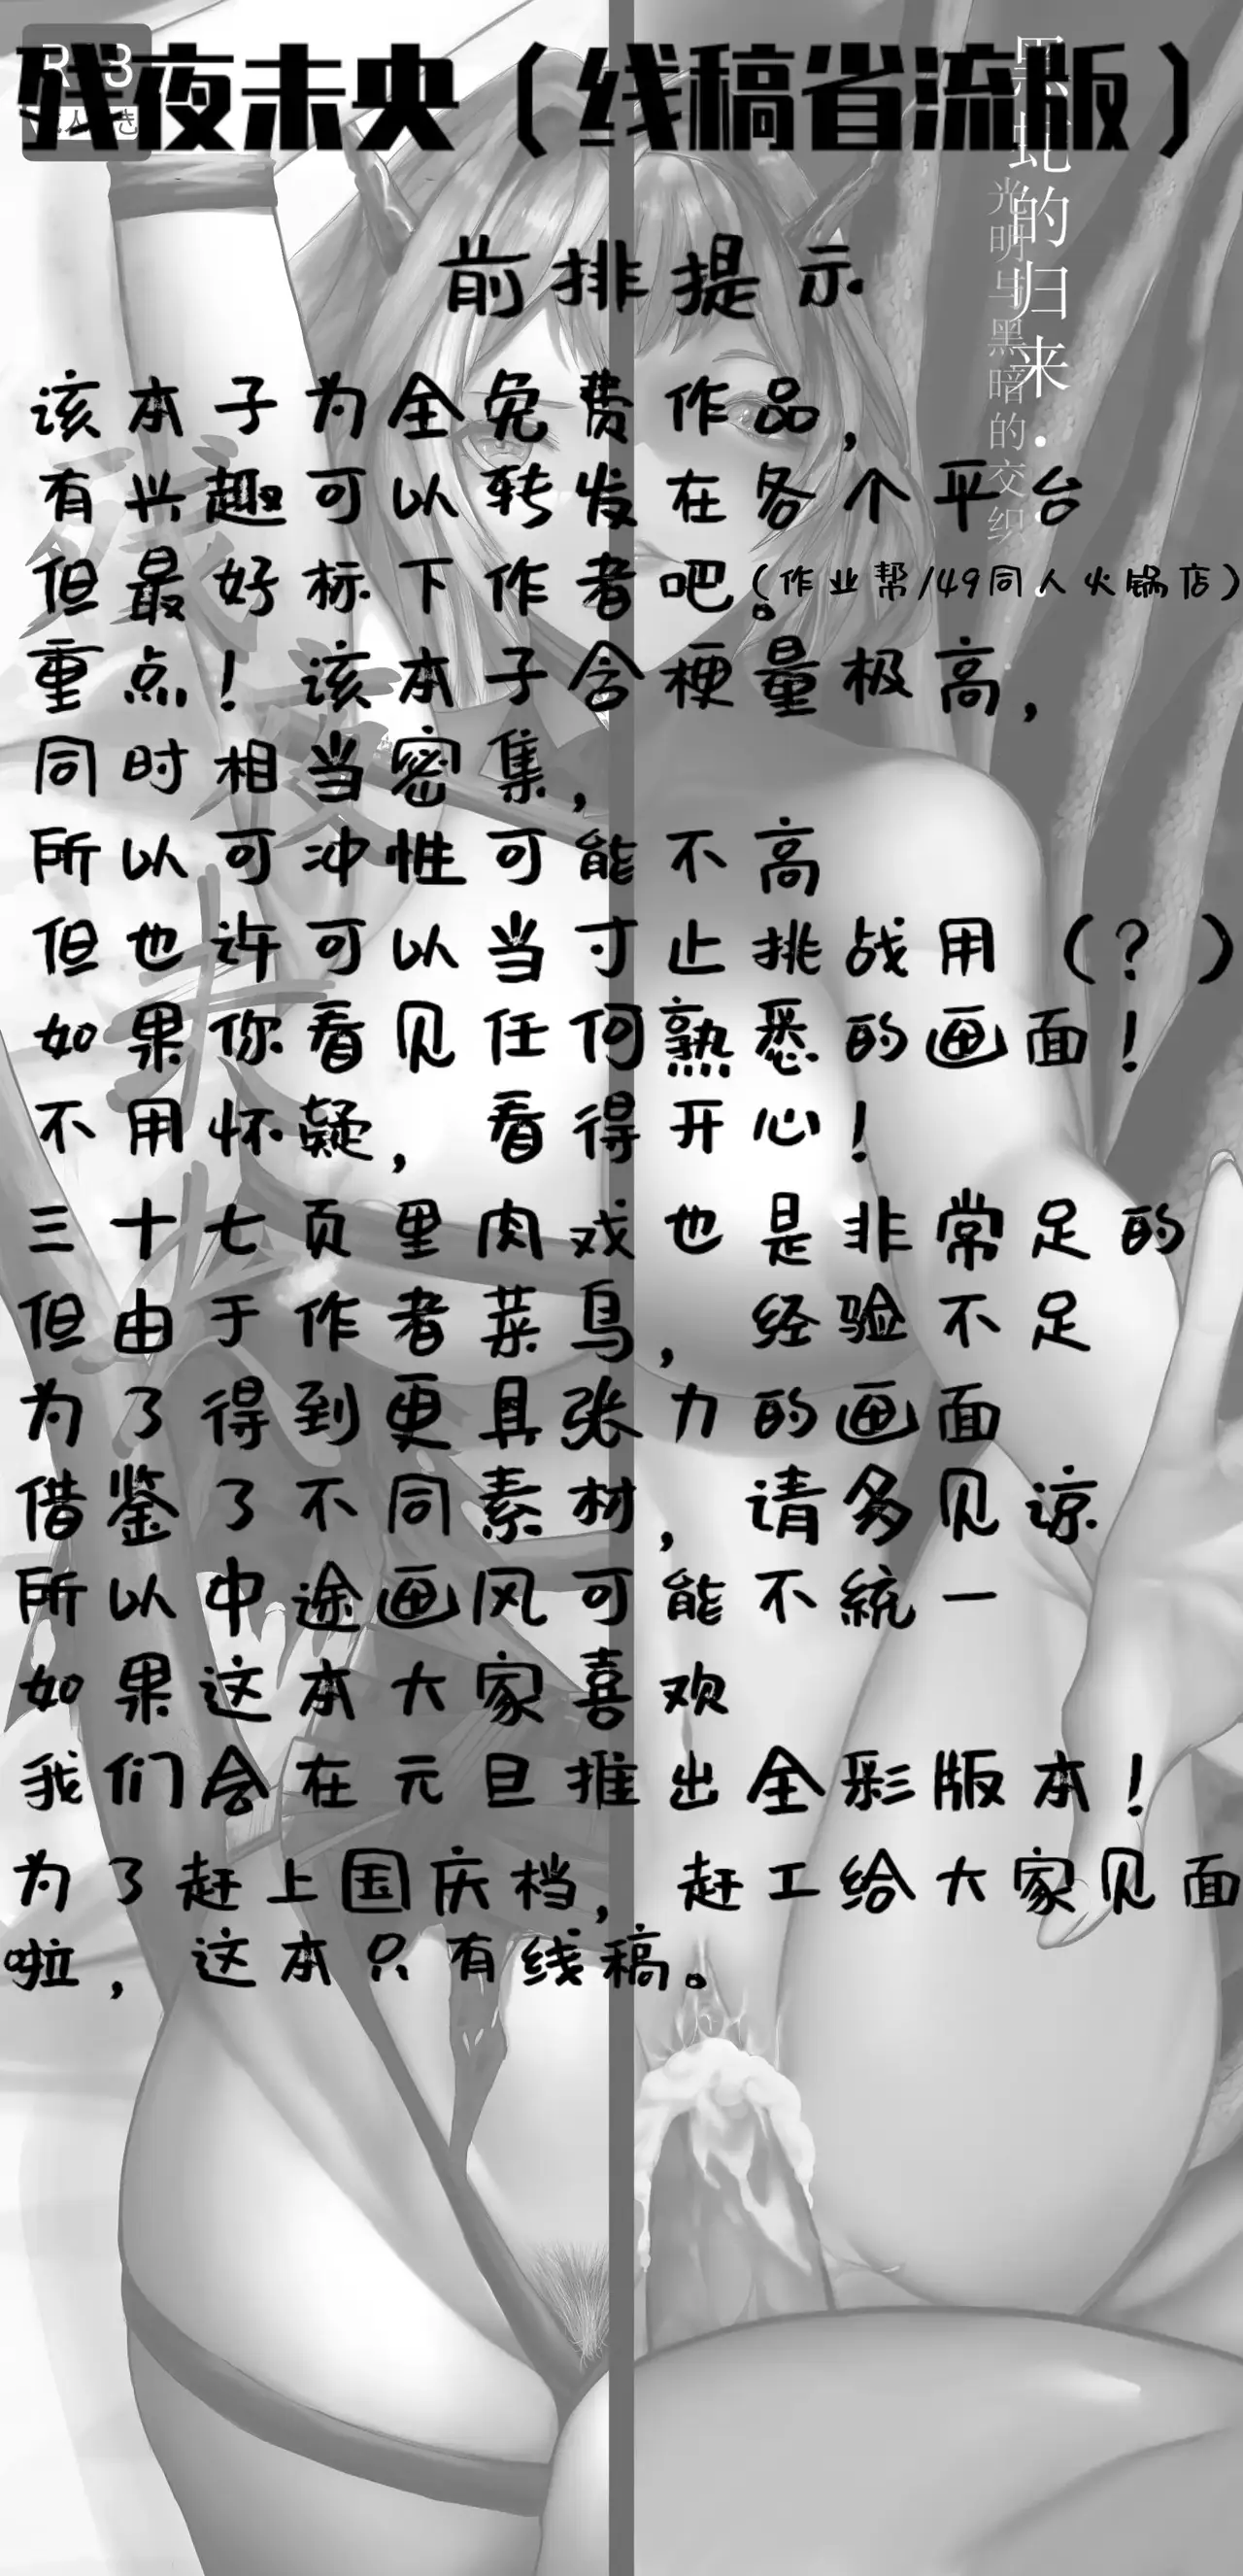 残夜未央（线稿省流版）
前排提示
该本子为全免费作品，
有兴趣可以转发在各个平台
但最好标下作者吧。（作业帮/49同人火锅店）
重点！该本子含梗量极高，
同时相当密集，
所以可冲性可能不高
但也许可以当寸止挑战用（？）
如果你看见任何熟悉的画面！
不用怀疑，看得开心！
三十七页里肉戏也是非常足的
但由于作者菜鸟，经验不足
为了得到更具张力的画面
借鉴了不同素材，请多见谅
所以中途画风可能不統一
如果这本大家喜欢
我们会在元旦推出全彩版本！
为了赶上国庆档，赶工给大家见面
啦，这本只有线稿。
黑蛇的归来
光明与黑暗的交织
残夜未央